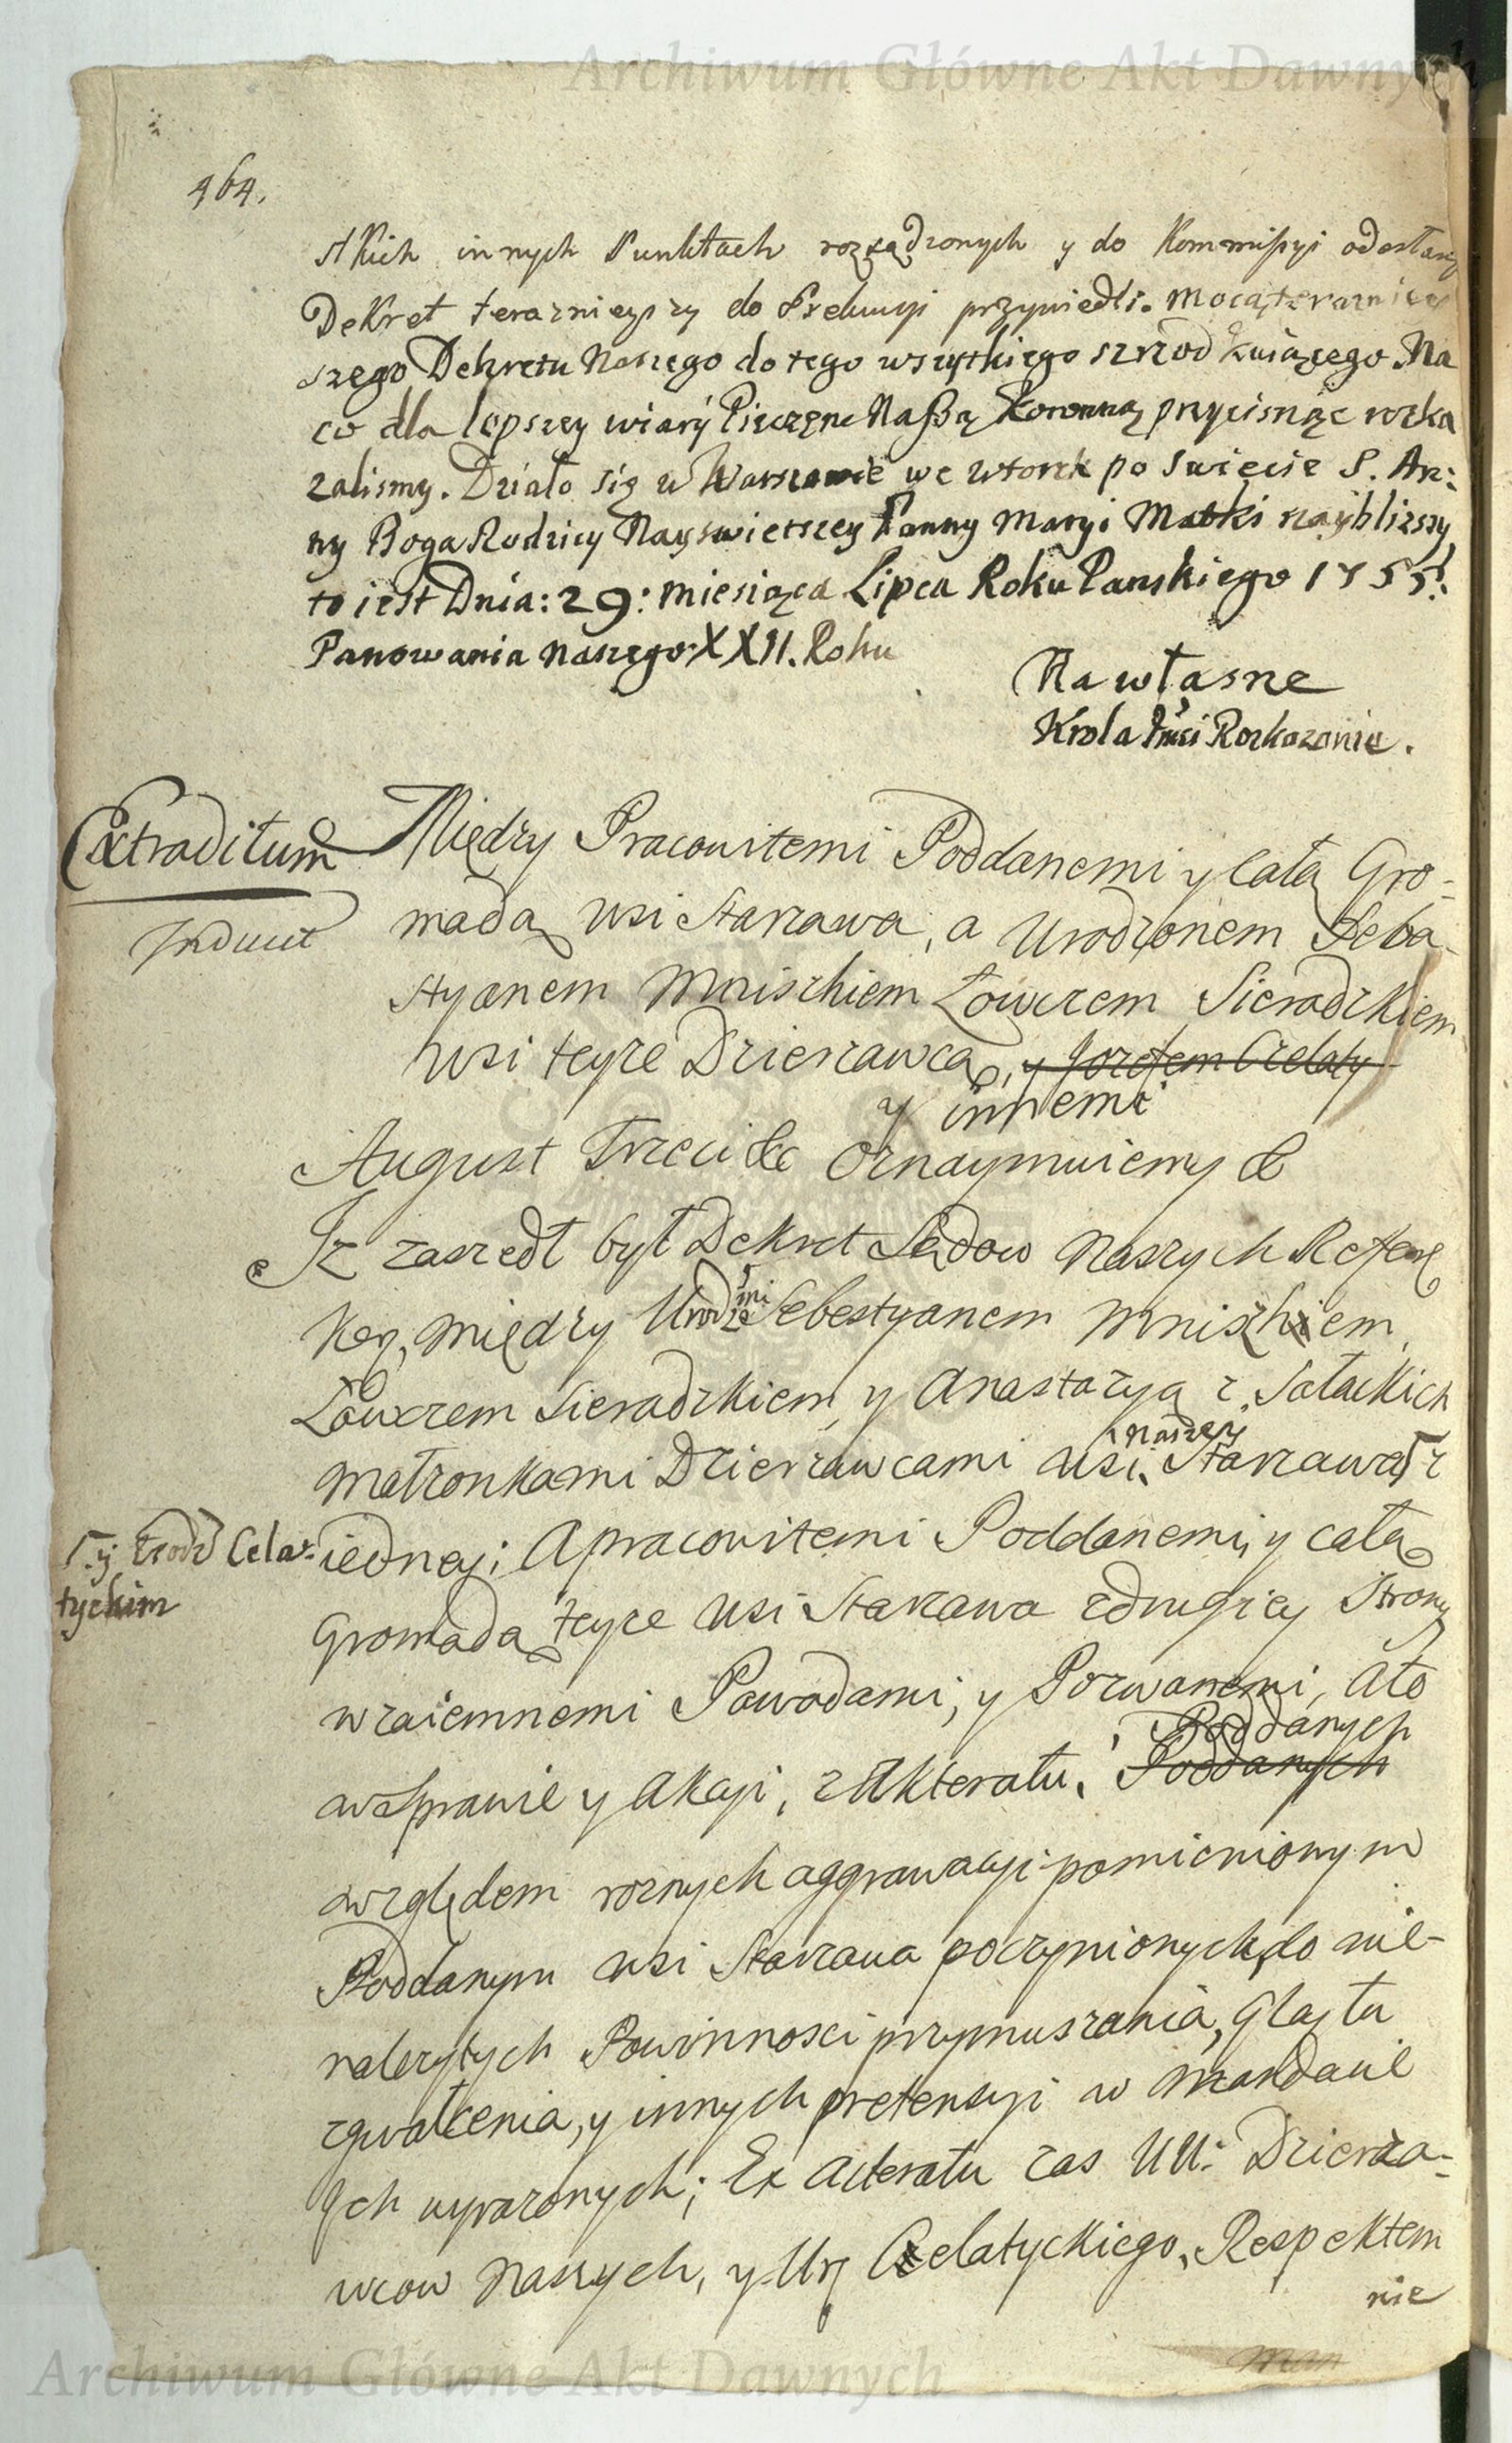 Archiwum Główne Akt Dawnych
464.
stkich innych Punktach rozsądzonych y do Kommissyi odesłany
Dekret terazniejszy do Exekucyi przywiedli. Mocą terazniey
szego Dekretu Naszego do tego wszytkiego szrzodkuiącego. Na
co dla lepszey wiary Pieczęnć Naszą Koronną przycisnąc rozka
zalismy. Działo się w Warszawie we wtorek po Swięcie S. An:
ny Boga Rodzicy Nayswietszey Panny Maryi Matki naybliszy
to iest Dnia: 29: Miesiąca Lipca Roku Panskiego 1755:
Panowania Naszego XXII. Roku
Na własne
Krola Jmci Rozkazanie.
Extraditum Między Pracowitemi Poddanemi y całą Gro-
Induxit madą wsi Starzawa, a Urodzonem Seba-
styanem Mniszkiem Łowczem Sieradzkiem
wsi teyze Dzierzawcą, y Jozefem Czelaty
y innemi
August Trzeci &c Oznaymuiemy &
Iz zaszedł był Dekret Sądow Naszych Referen
Key, między Urodzo
nemi Sebestyanem Mniszkiem,
Łowczem Sieradzkiem, y Anastazyą z Sałackich
Małzonkami Dzierzawcami wsi Naszey Starzawa z
y Urodz Cela:
tyckim
iedney; A pracowitemi Poddanemi, y całą
Gromadą teyze wsi Starzawa z drugiey Strony
wzaiemnemi Powodami, y Pozwanemi, a to
w Sprawie y Akcyi, z Akteratu, Poddanych
Poddanych
względem roznych aggrawacyi pomienionym
Poddanym wsi Starzawa poczynionych, do nie-
nalezytych Powinnosci przymuszania, Glaytu
zgwałcenia, y innych pretensyi w Mandacie
Ich wyrazonych; Ex Acteratu zas UU: Dzierza-
wcow Naszych, y Ur Czelatyckiego, Respektem
nie
Archiwum Główne Akt Dawnych